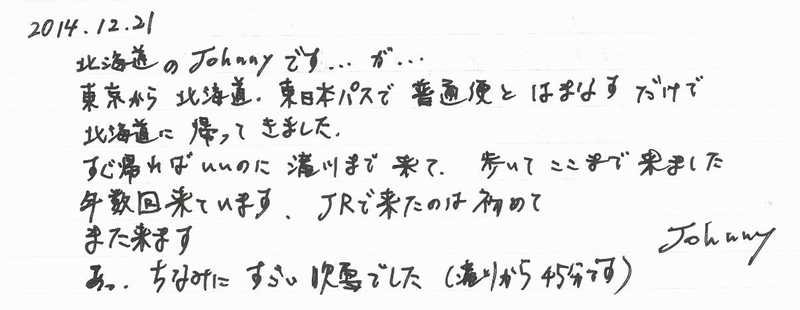 2014.12.21
北海道のJohnnyです…が…
東京から北海道.東日本パスで普通便とはまなすだけで
北海道に帰ってきました.
すぐ帰ればいいのに滝川まで来て.歩いてここまで来ました
年数回来ています.JRで来たのは初めて
また来ます
Johnny
あっ.ちなみにすごい吹雪でした(滝川から45分です)